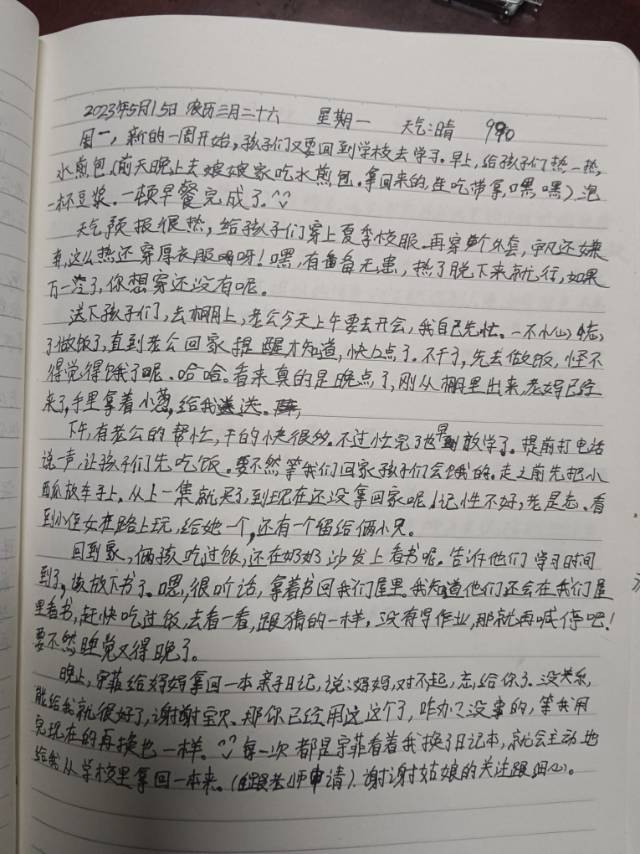 2023年5月15日 农历三月二十六 星期一 天气:晴 990
周一,新的一周开始,孩子们又要回到学校去学习。早上,给孩子们热一热,
水煎包,(前天晚上去娘娘家吃水煎包。拿回来的,连吃带拿,嘿嘿)泡
一杯豆浆。一顿早餐完成了。
天气预报很热,给孩子们穿上夏季校服。再穿个外套,宇凡还嫌
弃,这么热还穿厚衣服呀!嘿,有备无患,热了脱下来就行,如果
万一冷了,你想穿还没有呢。
送下孩子们,去棚上,老公今天上午要去开会,我自己先忙。一不小心,忘
了做饭了,直到老公回家提醒才知道,快12点了。不干了,先去做饭,怪不
得觉得饿了呢。哈哈。看来真的是晚点了,刚从棚里出来,老妈已经
来了,手里拿着小葱,给我送。
下午,有老公的帮忙,干的快很多。不过忙完了也是到放学了。提前打电话
说一声,让孩子们先吃饭。要不然等我们回家孩子们会饿的。走之前先把小
西瓜放车子上。从上一集就买了,到现在还没拿回家呢!记性不好,老是忘。看
到小侄女在路上玩,给她一个,还有一个留给俩小只。
回到家,俩孩吃过饭,还在奶奶沙发上看书呢。告诉他们学习时间
到了,该放下书了。嗯,很听话,拿着书回我们屋里。我知道他们还会在我们屋
里看书,赶快吃过饭,去看一看,跟猜的一样,没有写作业,那就再喊停吧!
要不然睡觉又得晚了。
晚上,宇菲给妈妈拿回一本亲子日记,说:妈妈,对不起,忘给你了。没关系,
能给我就很好了,谢谢宝贝。那你已经用这个了,咋办?没事的,等我用
完现在的再换也一样。每一次都是宇菲看着我换了日记本,就会主动地
给我从学校里拿回一本来。(跟老师申请)谢谢姑娘的关注跟细心。